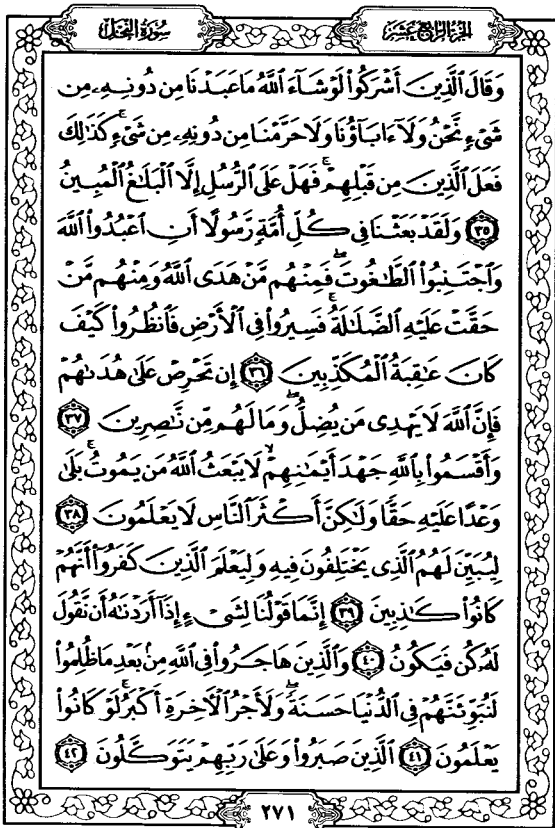 سُورَةُ النَّحْلِ
الجُزْءُ الرَّابِعَ عَشَرَ
وَقَالَ ٱلَّذِينَ أَشْرَكُوا۟ لَوْ شَآءَ ٱللَّهُ مَا عَبَدْنَا مِن دُونِهِۦ مِن
شَىْءٍ نَّحْنُ وَلَآ ءَابَآؤُنَا وَلَا حَرَّمْنَا مِن دُونِهِۦ مِن شَىْءٍ ۚ كَذَٰلِكَ
فَعَلَ ٱلَّذِينَ مِن قَبْلِهِمْ ۚ فَهَلْ عَلَى ٱلرُّسُلِ إِلَّا ٱلْبَلَـٰغُ ٱلْمُبِينُ
٣٥ وَلَقَدْ بَعَثْنَا فِى كُلِّ أُمَّةٍ رَّسُولًا أَنِ ٱعْبُدُوا۟ ٱللَّهَ
وَٱجْتَنِبُوا۟ ٱلطَّـٰغُوتَ ۖ فَمِنْهُم مَّنْ هَدَى ٱللَّهُ وَمِنْهُم مَّنْ
حَقَّتْ عَلَيْهِ ٱلضَّلَـٰلَةُ ۚ فَسِيرُوا۟ فِى ٱلْأَرْضِ فَٱنظُرُوا۟ كَيْفَ
كَانَ عَـٰقِبَةُ ٱلْمُكَذِّبِينَ ٣٦ إِن تَحْرِصْ عَلَىٰ هُدَىٰهُمْ
فَإِنَّ ٱللَّهَ لَا يَهْدِى مَن يُضِلُّ ۖ وَمَا لَهُم مِّن نَّـٰصِرِينَ ٣٧
وَأَقْسَمُوا۟ بِٱللَّهِ جَهْدَ أَيْمَـٰنِهِمْ ۙ لَا يَبْعَثُ ٱللَّهُ مَن يَمُوتُ ۚ بَلَىٰ
وَعْدًا عَلَيْهِ حَقًّا وَلَـٰكِنَّ أَكْثَرَ ٱلنَّاسِ لَا يَعْلَمُونَ ٣٨
لِيُبَيِّنَ لَهُمُ ٱلَّذِى يَخْتَلِفُونَ فِيهِ وَلِيَعْلَمَ ٱلَّذِينَ كَفَرُوٓا۟ أَنَّهُمْ
كَانُوا۟ كَـٰذِبِينَ ٣٩ إِنَّمَا قَوْلُنَا لِشَىْءٍ إِذَآ أَرَدْنَـٰهُ أَن نَّقُولَ
لَهُۥ كُن فَيَكُونُ ٤٠ وَٱلَّذِينَ هَاجَرُوا۟ فِى ٱللَّهِ مِنۢ بَعْدِ مَا ظُلِمُوا۟
لَنُبَوِّئَنَّهُمْ فِى ٱلدُّنْيَا حَسَنَةً ۖ وَلَأَجْرُ ٱلْـَٔاخِرَةِ أَكْبَرُ ۚ لَوْ كَانُوا۟
يَعْلَمُونَ ٤١ ٱلَّذِينَ صَبَرُوا۟ وَعَلَىٰ رَبِّهِمْ يَتَوَكَّلُونَ ٤٢
٢٧١